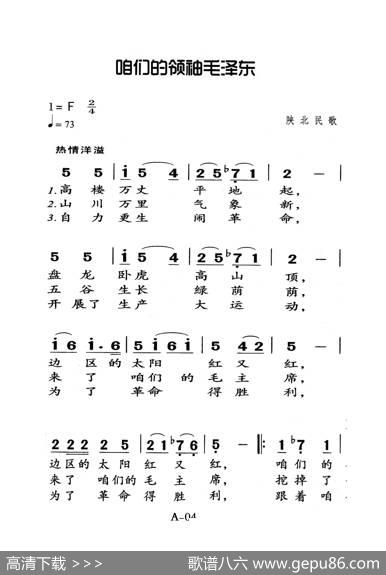 咱们的领袖毛泽东
1=F 2/4
♩=73
陕北民歌
热情洋溢
5 5 | i 5 4 | 2 5 ♭7 1 | 2 — |
1.高楼万丈平地起，
2.山川万里气象新，
3.自力更生闹革命，
5 5 | i 5 4 | 2 5 ♭7 1 | 2 — |
盘龙卧虎高山顶，
五谷生长绿荫荫，
开展了生产大运动，
i 6 i · 6 | 5 i 6 i | 5 · 4 | 2 — |
边区的太阳红又红，
来了咱们的毛主席，
为了革命得胜利，
2 2 2 2 5 | 2 1 ♭7 6 | 5 — ‖: 1 ♭7 1 |
边区的太阳红又红，咱们的
来了咱们的毛主席，挖掉了
为了革命得胜利，跟着咱
A-04
高清下载 >>>
歌谱八六 www.gepu86.com